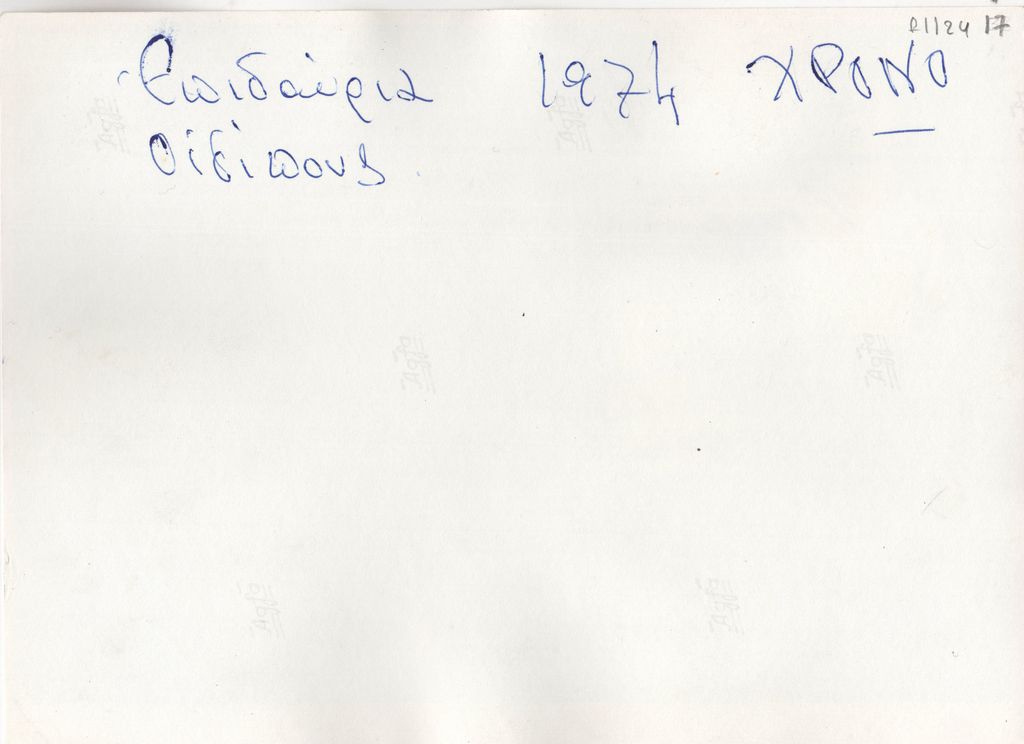 Α1124 17
Επιδαύρια 1974 ΧΡΟΝΟ
Οιδίπους
Agfa
Agfa
Agfa
Agfa
Agfa
Agfa